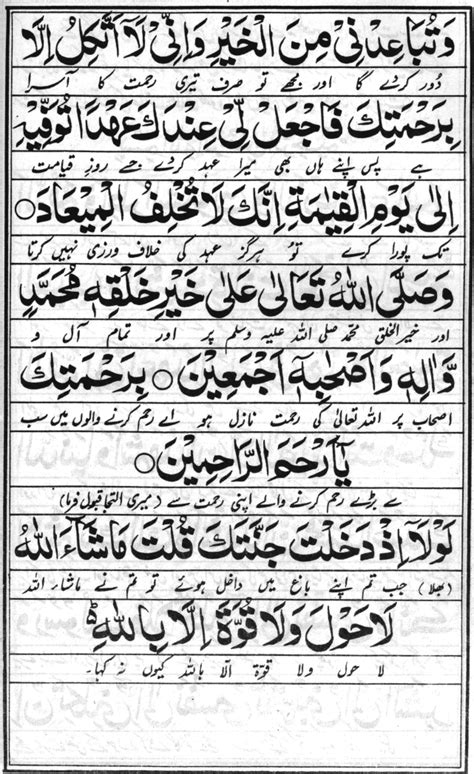 وَتُبَاعِدُنِیْ مِنَ الْخَیْرِ وَاِنِّیْ لَاۤ اَتَّكِلُ اِلَّا
دُور کردے گا اور مجھے تو صرف تیری رحمت کا آسرا
بِرَحْمَتِكَ فَاجْعَلْ لِّیْ عِنْدَكَ عَهْدًا تُوَفِّیْهِ
ہے پس اپنے ہاں بھی میرا عہد کردے جسے روزِ قیامت
اِلٰی یَوْمِ الْقِیٰمَةِ اِنَّكَ لَا تُخْلِفُ الْمِیْعَادَ ○
تک پورا کرے تُو ہرگز عہد کی خلاف ورزی نہیں کرتا
وَصَلَّی اللهُ تَعَالٰی عَلٰی خَیْرِ خَلْقِهٖ مُحَمَّدٍ
اور خیرالخلق محمد صلی اللہ علیہ وسلم پر اور تمام آل و
وَّاٰلِهٖ وَاَصْحٰبِهٖۤ اَجْمَعِیْنَ ○ بِرَحْمَتِكَ
اصحاب پر اللہ تعالیٰ کی رحمت نازل ہو اے رحم کرنے والوں میں سب
یَاۤ اَرْحَمَ الرَّاحِمِیْنَ ○
سے بڑے رحم کرنے والے اپنی رحمت سے (میری التجا قبول فرما)
لَوْلَاۤ اِذْ دَخَلْتَ جَنَّتَكَ قُلْتَ مَاشَآءَ اللهُ
(بھلا) جب تم اپنے باغ میں داخل ہوئے تو تم نے ماشاء اللہ
لَا حَوْلَ وَلَا قُوَّةَ اِلَّا بِاللهِ
لا حول ولا قوۃ الا باللہ کیوں نہ کہا۔